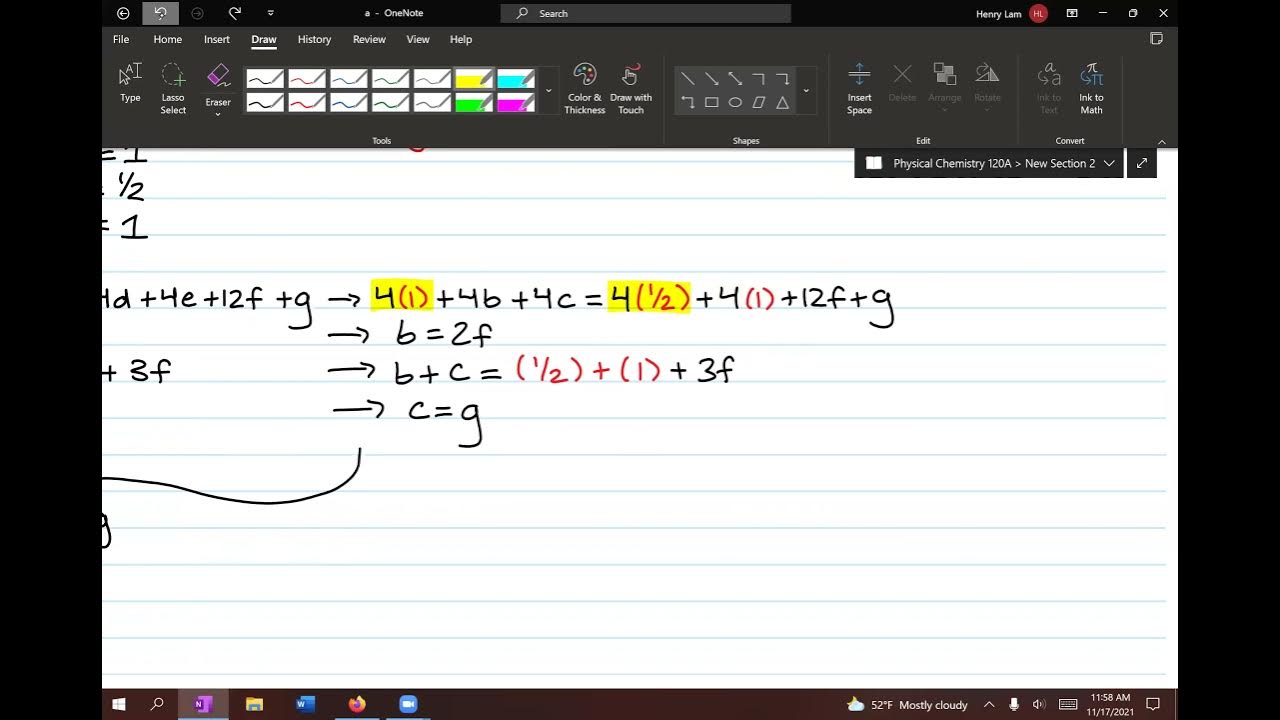 a - OneNote
Search
Henry Lam HL
File Home Insert Draw History Review View Help
Type
Lasso Select
Eraser
Color & Thickness
Draw with Touch
Insert Space
Delete
Arrange
Rotate
Ink to Text
Ink to Math
Tools Shapes Edit Convert
Physical Chemistry 120A > New Section 2
= 1
= 1/2
= 1
4d + 4e + 12f + g → 4(1) + 4b + 4c = 4(1/2) + 4(1) + 12f + g
→ b = 2f
+ 3f → b + c = (1/2) + (1) + 3f
→ c = g
g
52°F Mostly cloudy
11:58 AM
11/17/2021